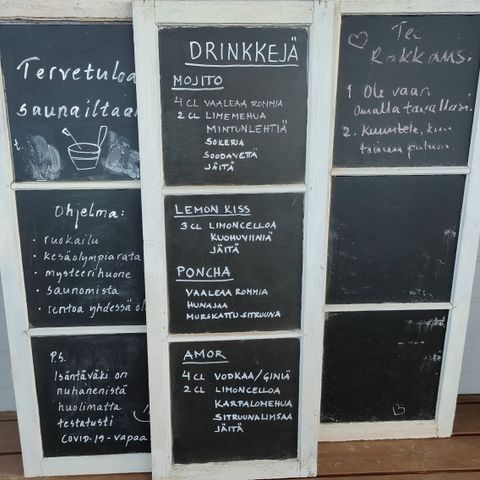 Tervetuloa
saunailtaan
Ohjelma:
· ruokailu
· kesäolympiarata
· mysteerihuone
· saunomista
· rentoa yhdessä ol
P.S.
Isäntäväki on
nuhanenistä
huolimatta
testatusti
COVID-19-vapaa
DRINKKEJÄ
MOJITO
4 CL VAALEAA ROMMIA
2 CL LIMEMEHUA
MINTUNLEHTIÄ
SOKERIA
SOODAVETTÄ
JÄITÄ
LEMON KISS
3 CL LIMONCELLOA
KUOHUVIINIÄ
JÄITÄ
PONCHA
VAALEAA ROMMIA
HUNAJAA
MURSKATTU SITRUUNA
AMOR
4 CL VODKAA/GINIÄ
2 CL LIMONCELLOA
KARPALOMEHUA
SITRUUNALIMSAA
JÄITÄ
Tei
Rakkaus:
1 Ole vaan
omalla tavallasi.
2. Kuuntele, kun
toinen puhuu.